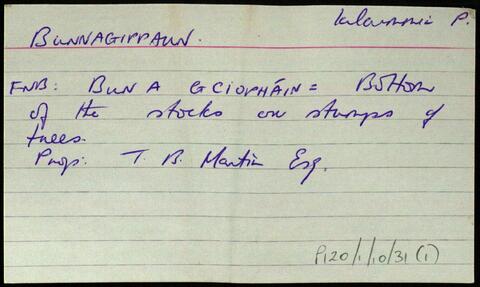 Kilcummin P.
BUNNAGIPPAUN.
FNB: BUN A GCIOPHÁIN = Bottom
of the stocks or stumps of
trees.
Prop: T. B. Martin Esq.
P120/1/10/31 (1)